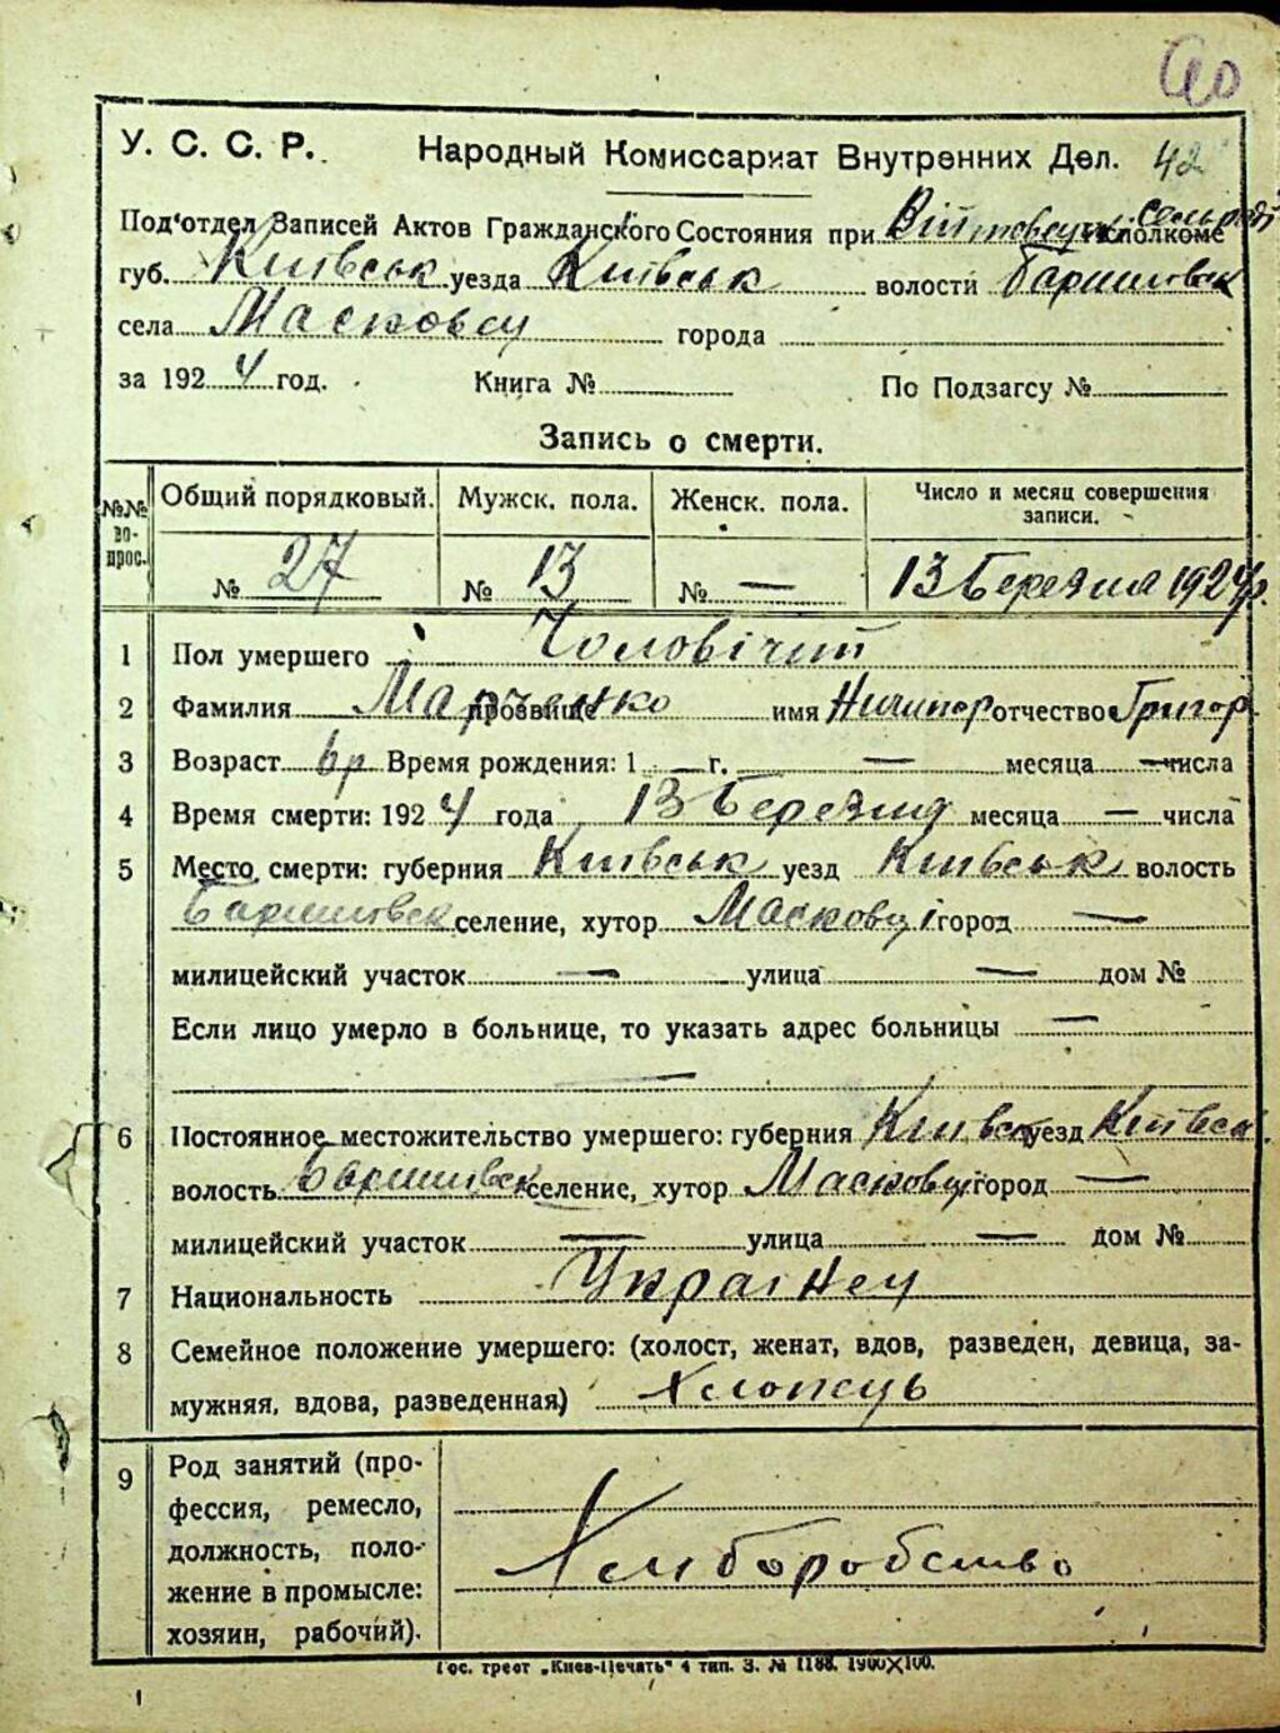 40
У. С. С. Р. Народный Комиссариат Внутренних Дел. 42
Под'отдел Записей Актов Гражданского Состояния при Війтовецк. исполкоме
губ. Київськ уезда Київськ волости Баришівськ
села Масковці города
за 1924 год. Книга № По Подзагсу №
Запись о смерти.
№№ вопрос. Общий порядковый. Мужск. пола. Женск. пола. Число и месяц совершения записи.
№ 27 № 13 № — 13 Березня 1924 р.
1 Пол умершего Чоловічий
2 Фамилия прозвище Марченко имя Ничипор отчество Григор
3 Возраст 6 р Время рождения: 1 — г. — месяца — числа
4 Время смерти: 1924 года 13 Березня месяца — числа
5 Место смерти: губерния Київськ уезд Київськ волость
Баришівськ селение, хутор Масковці город —
милицейский участок — улица — дом №
Если лицо умерло в больнице, то указать адрес больницы —
—
6 Постоянное местожительство умершего: губерния Київськ уезд Київськ.
волость Баришівск селение, хутор Масковці город —
милицейский участок — улица — дом №
7 Национальность Украінец
8 Семейное положение умершего: (холост, женат, вдов, разведен, девица, за-
мужняя, вдова, разведенная) Хлопець
9 Род занятий (про-
фессия, ремесло,
должность, поло-
жение в промысле:
хозяин, рабочий).
Хліборобство
Гос. трест „Киев-Печать“ 4 тип. З. № 1188. 1900×100.
1